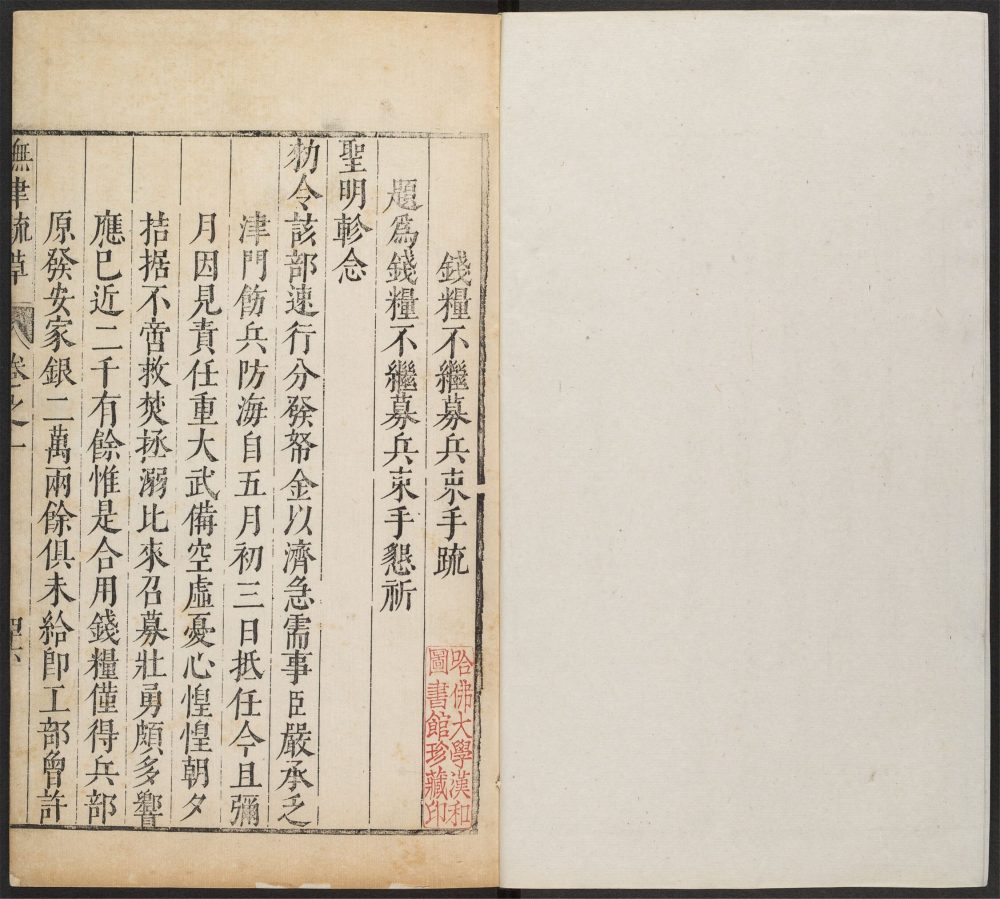 錢糧不繼募兵束手疏
題爲錢糧不繼募兵束手懇祈
聖明軫念
勑令該部速行分發帑金以濟急需事臣嚴承乏
津門飭兵防海自五月初三日抵任今且彌
月因見責任重大武備空虛憂心惶惶朝夕
拮据不啻救焚拯溺比來召募壯勇頗多響
應巳近二千有餘惟是合用錢糧僅得兵部
原發安家銀二萬兩餘俱未給卽工部曾許
撫津疏草 卷之一
哈佛大學漢和
圖書館珍藏印